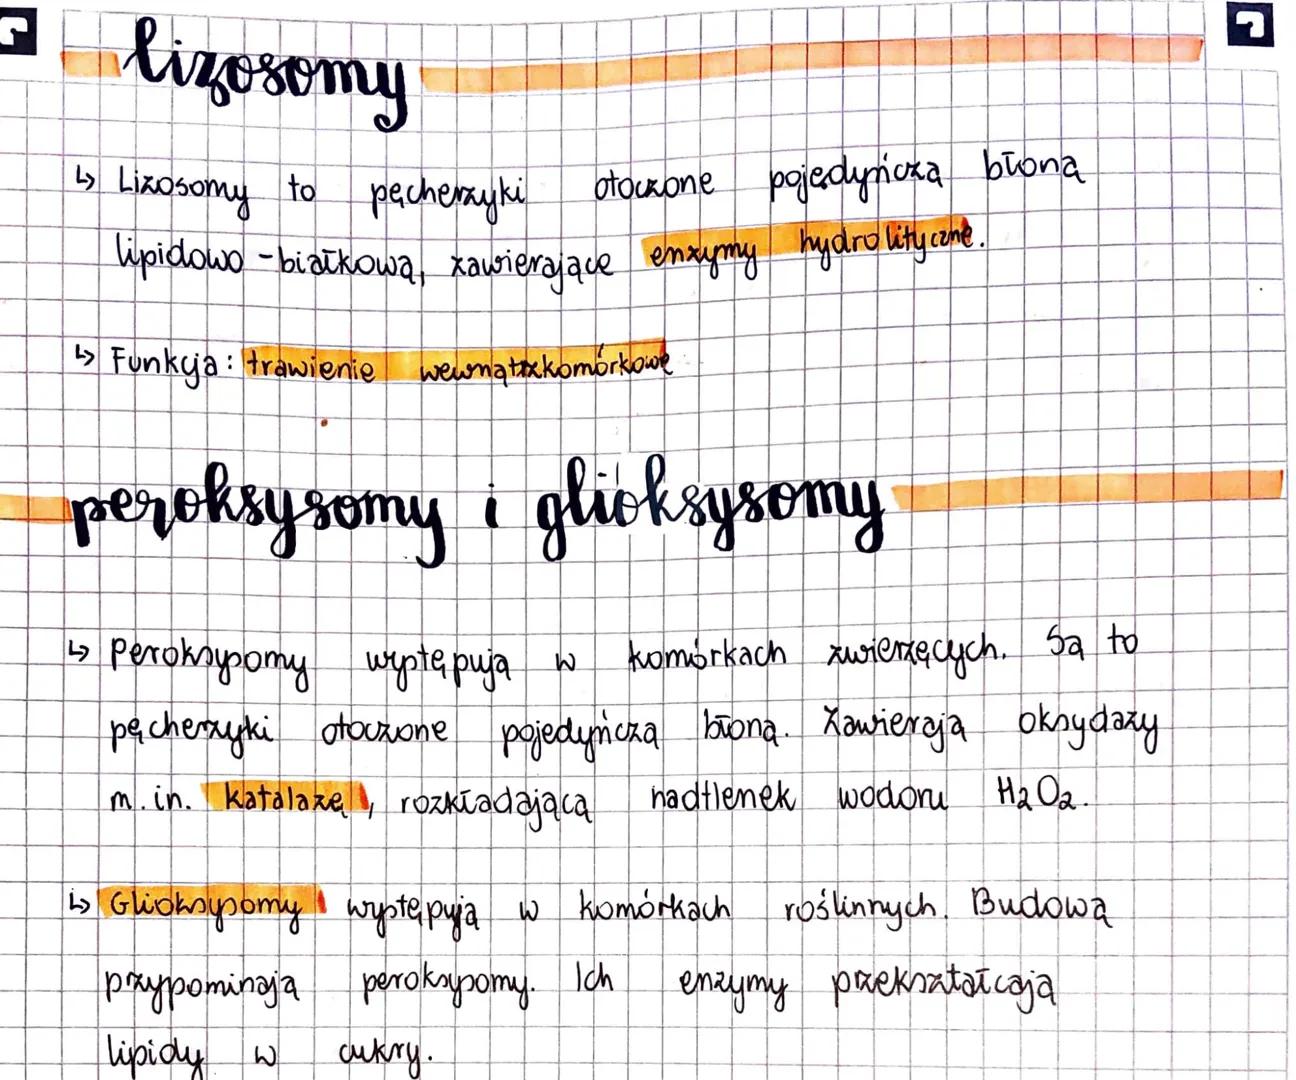 lizosomy
↳ Lizosomy to pęcherzyki otoczone pojedyńczą błoną
lipidowo-białkową, zawierające enzymy hydrolityczne.
↳ Funkcja: trawienie wewnątrzkomórkowe
peroksysomy i glioksysomy
↳ Peroksysomy występują w komórkach zwierzęcych. Są to
pęcherzyki otoczone pojedyńczą błoną. Zawierają oksydazy
m.in. katalazę, rozkładającą nadtlenek wodoru H₂O₂.
↳ Glioksysomy występują w komórkach roślinnych. Budową
przypominają peroksysomy. Ich enzymy przekształcają
lipidy w cukry.